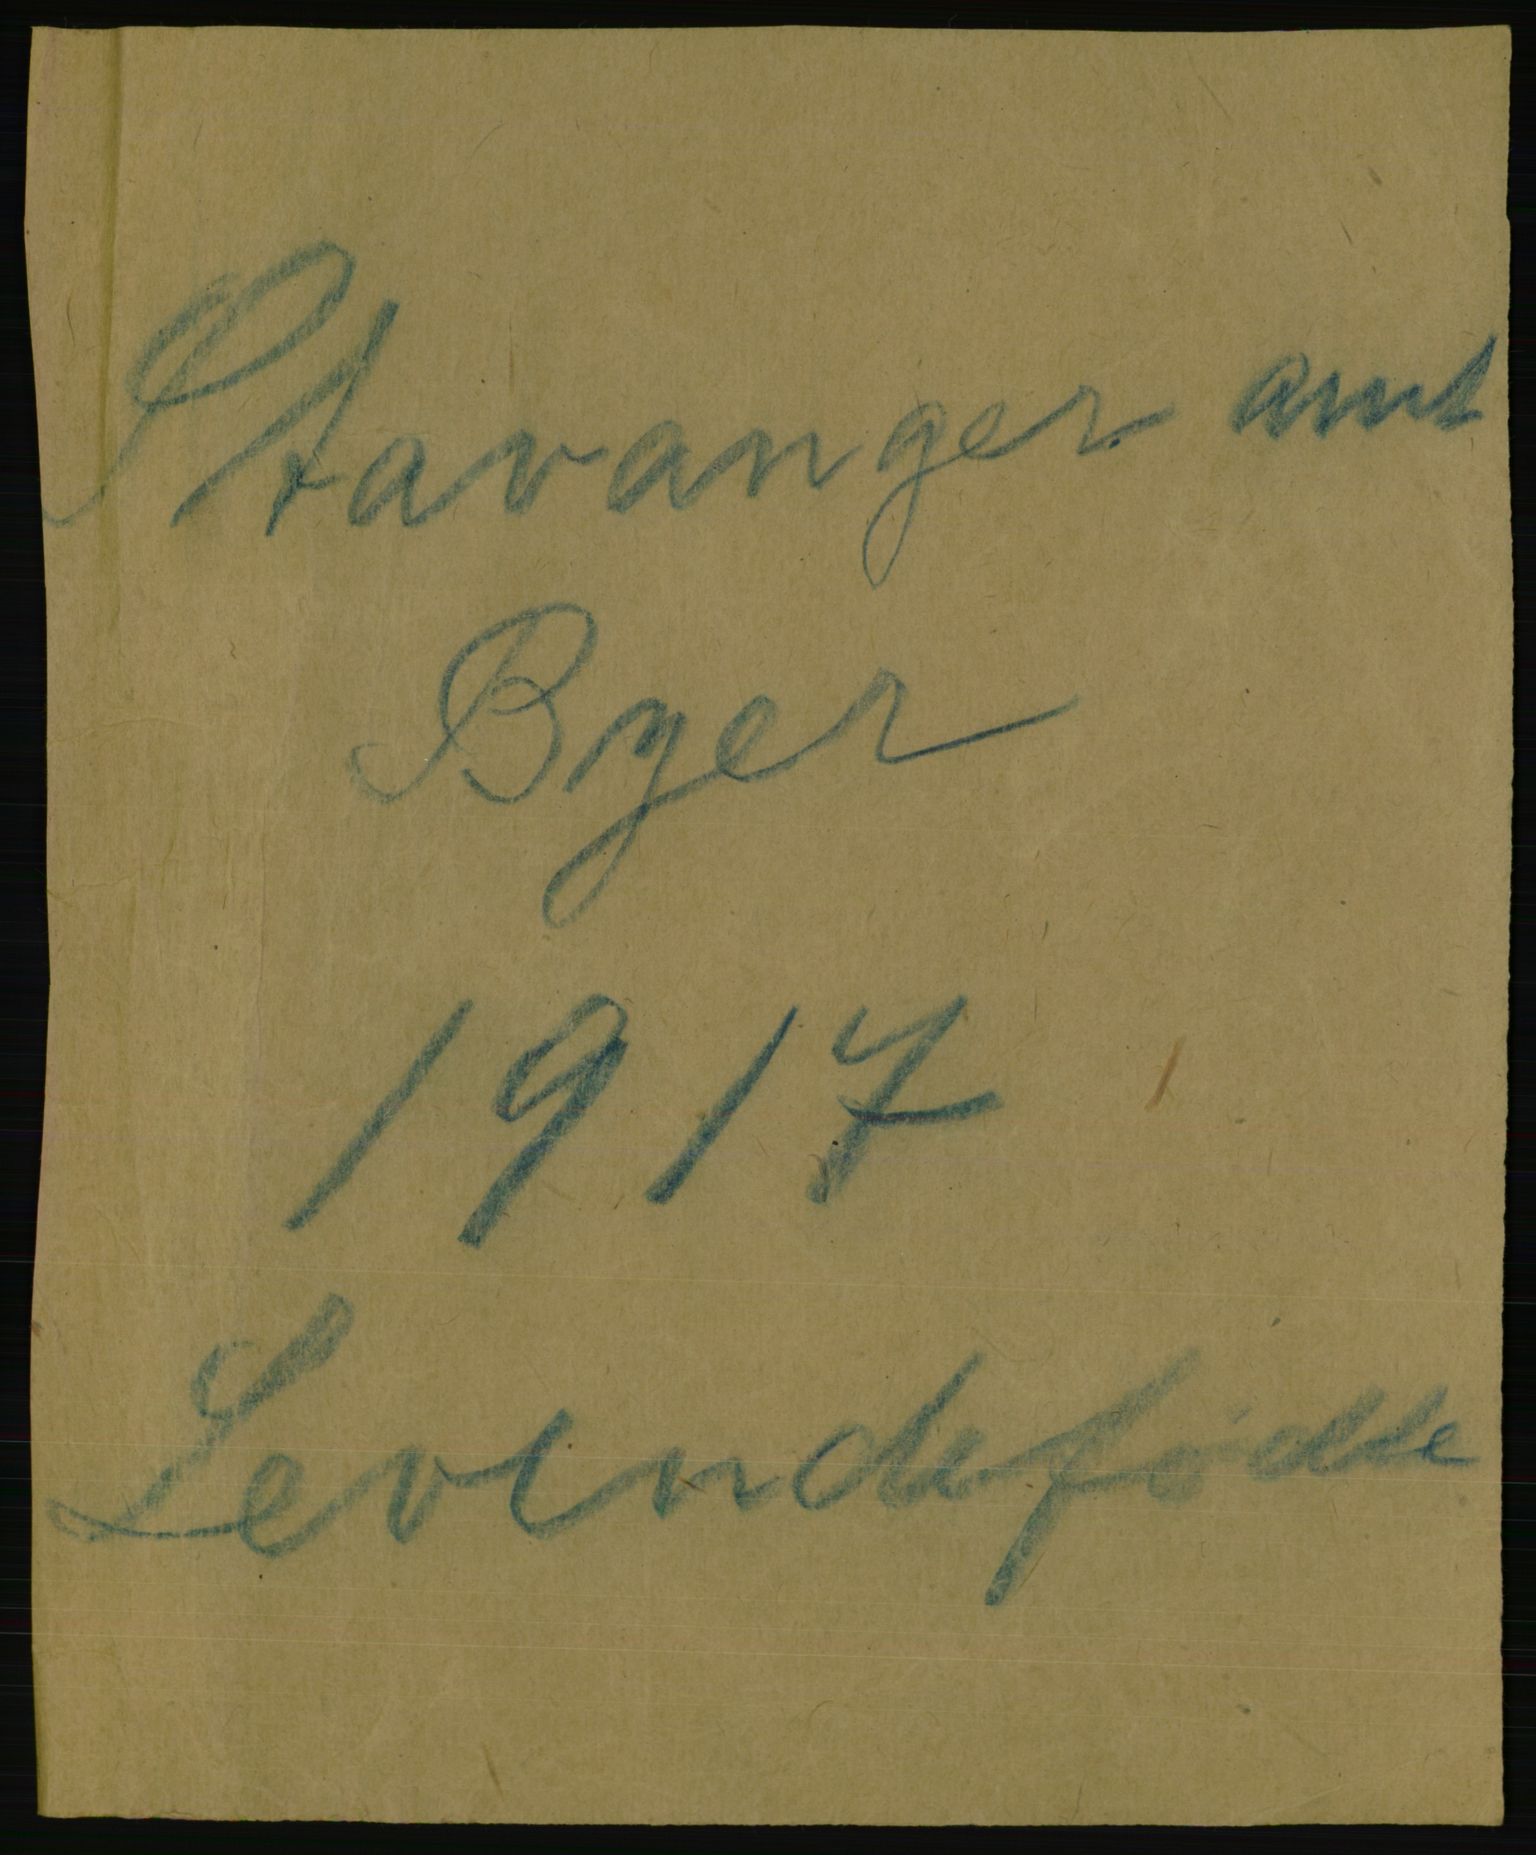 Stavanger amt
Byer
1917
Levendefødte